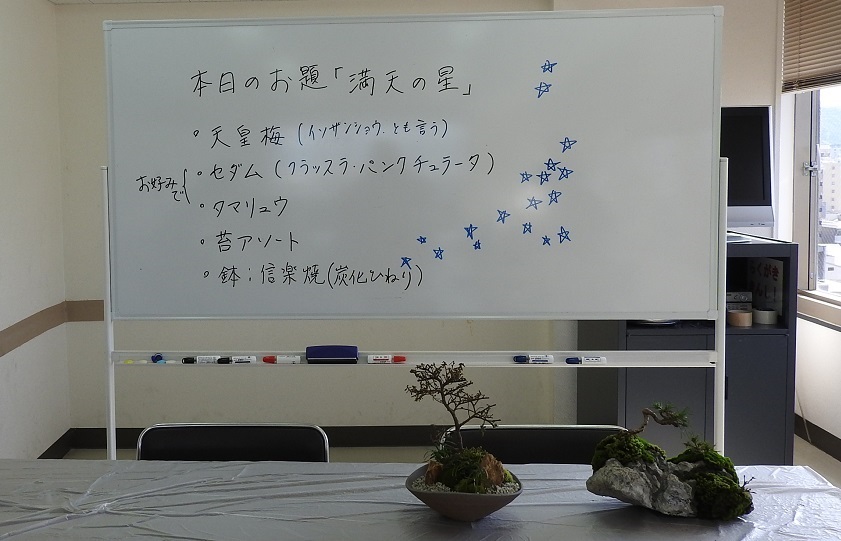 本日のお題「満天の星」
・天皇梅(イソザンショウ.とも言う)
お好みで
・セダム(クラッスラ・パンクチュラータ)
・タマリュウ
・苔アソート
・鉢:信楽焼(炭化ひねり)